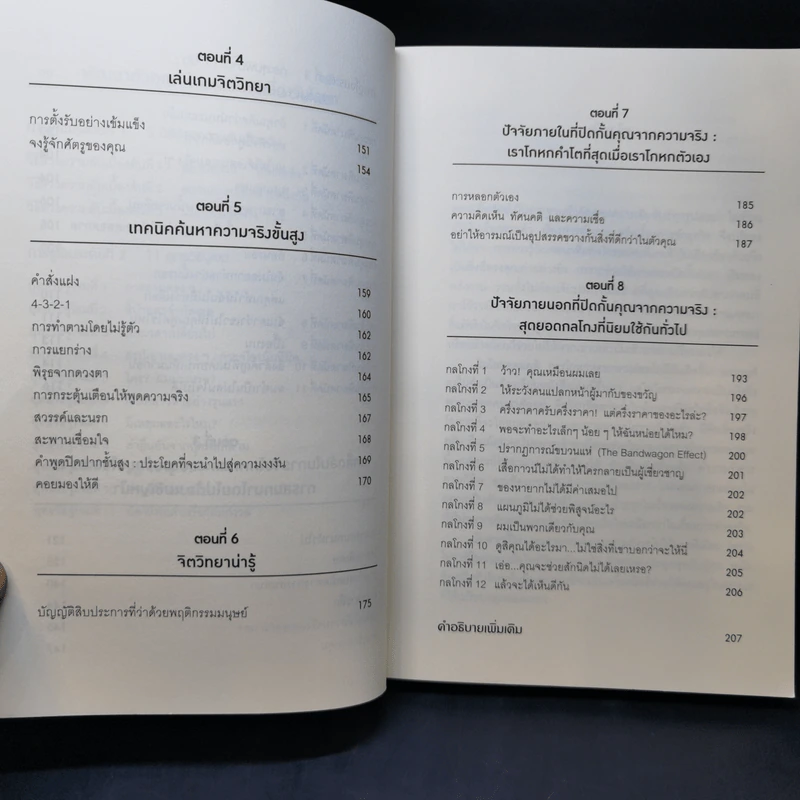 ตอนที่ 4
เล่นเกมจิตวิทยา
การตั้งรับอย่างเข้มแข็ง 151
จงรู้จักศัตรูของคุณ 154
ตอนที่ 5
เทคนิคค้นหาความจริงขั้นสูง
คำสั่งแฝง 159
4-3-2-1 160
การทำตามโดยไม่รู้ตัว 162
การแยกร่าง 162
พิรุธจากดวงตา 164
การกระตุ้นเตือนให้พูดความจริง 165
สวรรค์และนรก 167
สะพานเชื่อมใจ 168
คำพูดปิดปากขั้นสูง : ประโยคที่จะนำไปสู่ความงงงัน 169
คอยมองให้ดี 170
ตอนที่ 6
จิตวิทยาน่ารู้
บัญญัติสิบประการที่ว่าด้วยพฤติกรรมมนุษย์ 175
ตอนที่ 7
ปัจจัยภายในที่ปิดกั้นคุณจากความจริง :
เราโกหกคำโตที่สุดเมื่อเราโกหกตัวเอง
การหลอกตัวเอง 185
ความคิดเห็น ทัศนคติ และความเชื่อ 186
อย่าให้อารมณ์เป็นอุปสรรคขวางกั้นสิ่งที่ดีกว่าในตัวคุณ 187
ตอนที่ 8
ปัจจัยภายนอกที่ปิดกั้นคุณจากความจริง :
สุดยอดกลโกงที่นิยมใช้กันทั่วไป
กลโกงที่ 1 ว้าว! คุณเหมือนผมเลย 193
กลโกงที่ 2 ให้ระวังคนแปลกหน้าผู้มากับของขวัญ 196
กลโกงที่ 3 ครึ่งราคาครับครึ่งราคา! แต่ครึ่งราคาของอะไรล่ะ? 197
กลโกงที่ 4 พอจะทำอะไรเล็กๆ น้อย ๆ ให้ฉันหน่อยได้ไหม? 198
กลโกงที่ 5 ปรากฏการณ์ขบวนแห่ (The Bandwagon Effect) 200
กลโกงที่ 6 เสื้อกาวน์ไม่ได้ทำให้ใครกลายเป็นผู้เชี่ยวชาญ 201
กลโกงที่ 7 ของหายากไม่ได้มีค่าเสมอไป 202
กลโกงที่ 8 แผนภูมิไม่ได้ช่วยพิสูจน์อะไร 202
กลโกงที่ 9 ผมเป็นพวกเดียวกับคุณ 203
กลโกงที่ 10 ดูสิคุณได้อะไรมา...ไม่ใช่สิ่งที่เขาบอกว่าจะให้นี่ 204
กลโกงที่ 11 เอ่อ...คุณจะช่วยสักนิดไม่ได้เลยเหรอ? 205
กลโกงที่ 12 แล้วจะได้เห็นดีกัน 206
คำอธิบายเพิ่มเติม 207